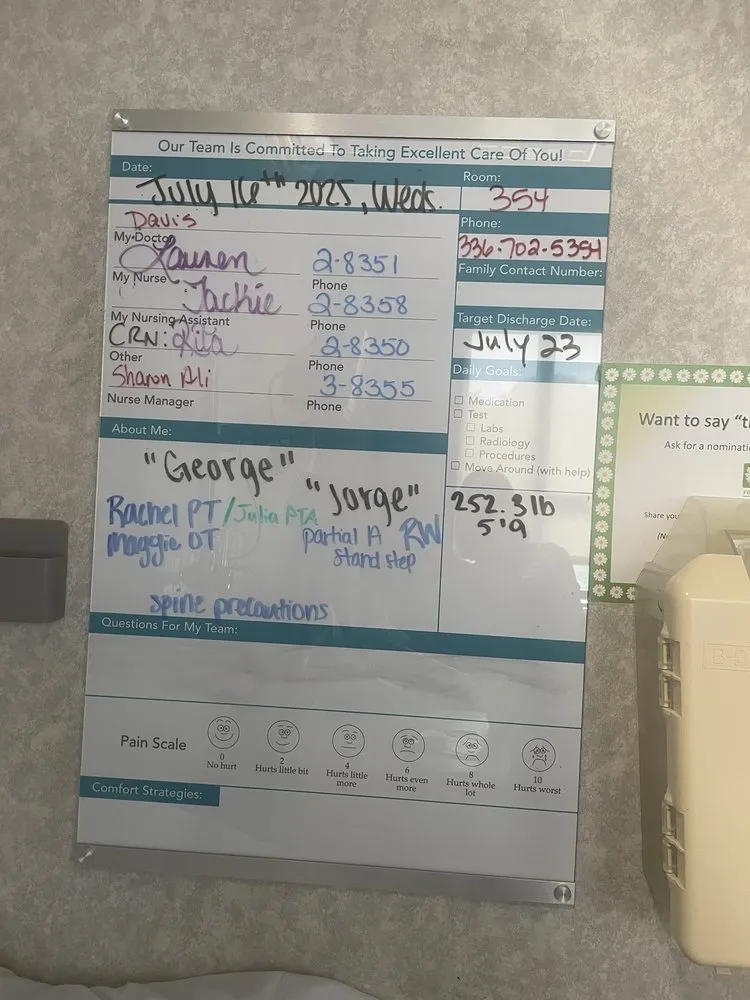 Our Team Is Committed To Taking Excellent Care Of You!
Date:
July 16th 2025, Weds.
Room:
354
Davis
My Doctor
Phone:
336-702-5354
Lauren 2-8351
My Nurse Phone
Family Contact Number:
Jackie 2-8358
My Nursing Assistant Phone
CRN: Rita 2-8350
Other Phone
Sharon Ali 3-8355
Nurse Manager Phone
Target Discharge Date:
July 23
Daily Goals:
Medication
Test
Labs
Radiology
Procedures
Move Around (with help)
252.3lb
5'9
About Me:
"George"
"Jorge"
Rachel PT/Julia PTA
Maggie OT
partial A RW
stand step
spine precautions
Questions For My Team:
Pain Scale
0 2 4 6 8 10
No hurt
Hurts little bit
Hurts little more
Hurts even more
Hurts whole lot
Hurts worst
Comfort Strategies:
Want to say "t
Ask for a nominati
Share you